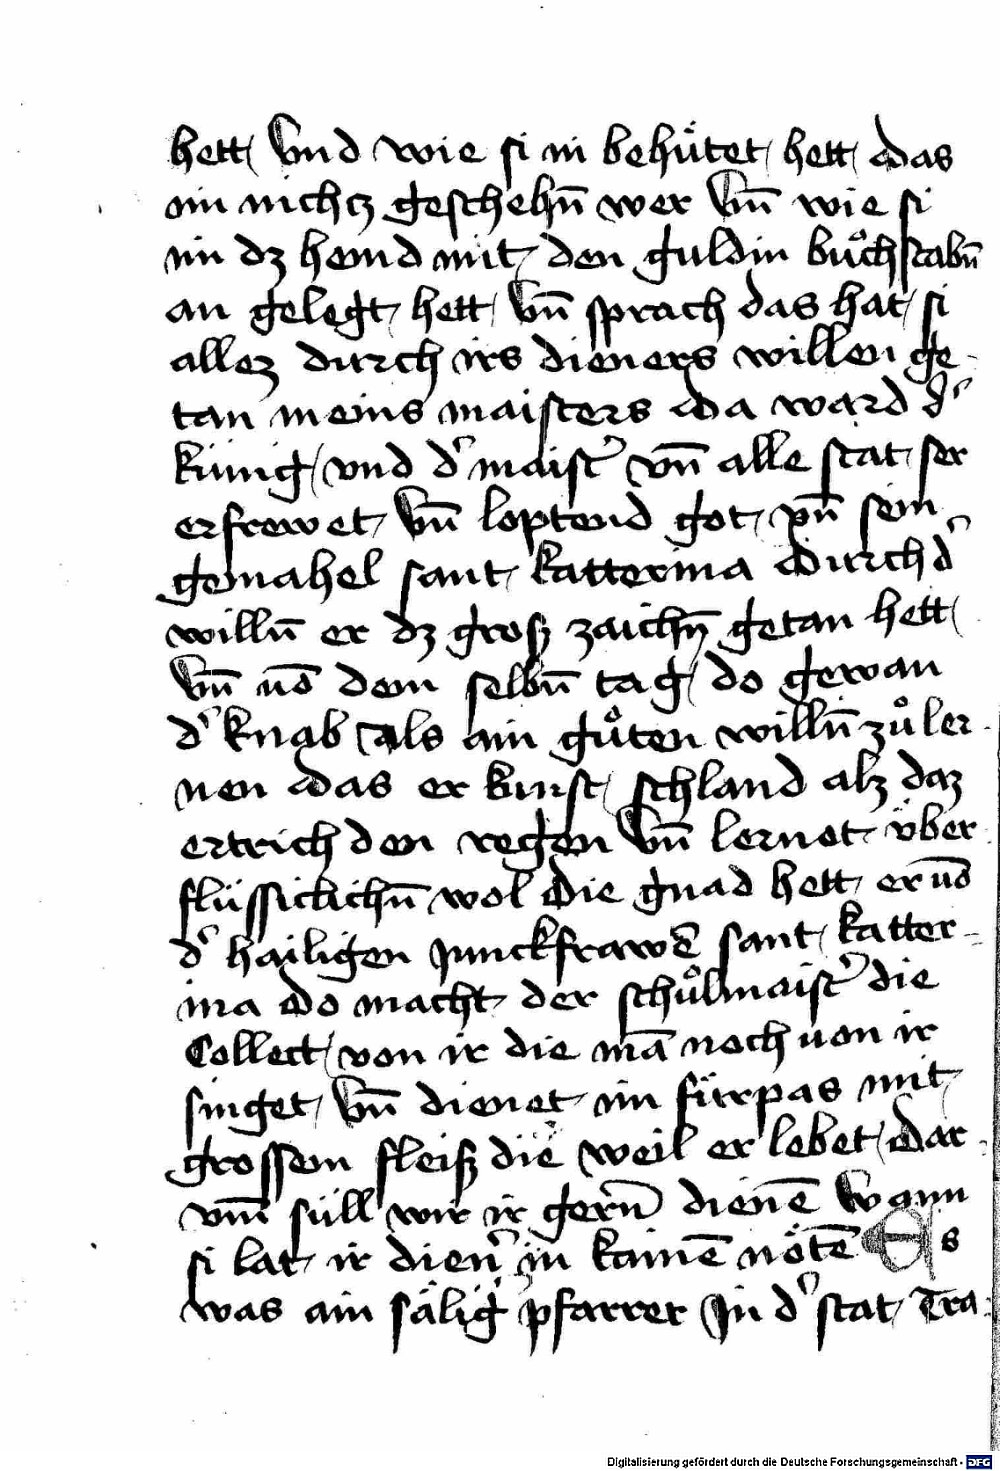 hett Vnd wie si in behütet hett das
im nichcz geschehn̄ wer Vn̄ wie si
im dz hemd mit den guldin bůchstabn̄
an gelegt hett Vn̄ sprach das hat si
allez durch irs dieners willen ge-
tan meins maisters Da ward d͛
künig vnd d͛ maist͛ vn̄ alle stat ser
erfrewet Vn̄ loptend got vn̄ sein
gemahel sant katterina Durch d͛
willn̄ er dz groß zaichn̄ getan hett
Vn̄ vō dem selbn̄ tag do gewan
d͛ knab als ain gůten willn̄ zů ler-
nen das er kunst schland alz daz
ertrich den regen Vn̄ lernet über-
flüssiclichn̄ wol Die gnad hett er vō
d͛ hailigen junckfrawē sant katter-
ina Do macht der schůlmaist͛ die
Collect von ir die mā noch von ir
singet Vn̄ dienet im fürpas mit
grossem fleiß die weil er lebet Dar-
vm̄ süll wir ir gern̄ dienē Wann
si lat ir dien͛ in kainē nötē Es
was ain sälig͛ pfarrer In d͛ stat Tra-
Digitalisierung gefördert durch die Deutsche Forschungsgemeinschaft - DFG